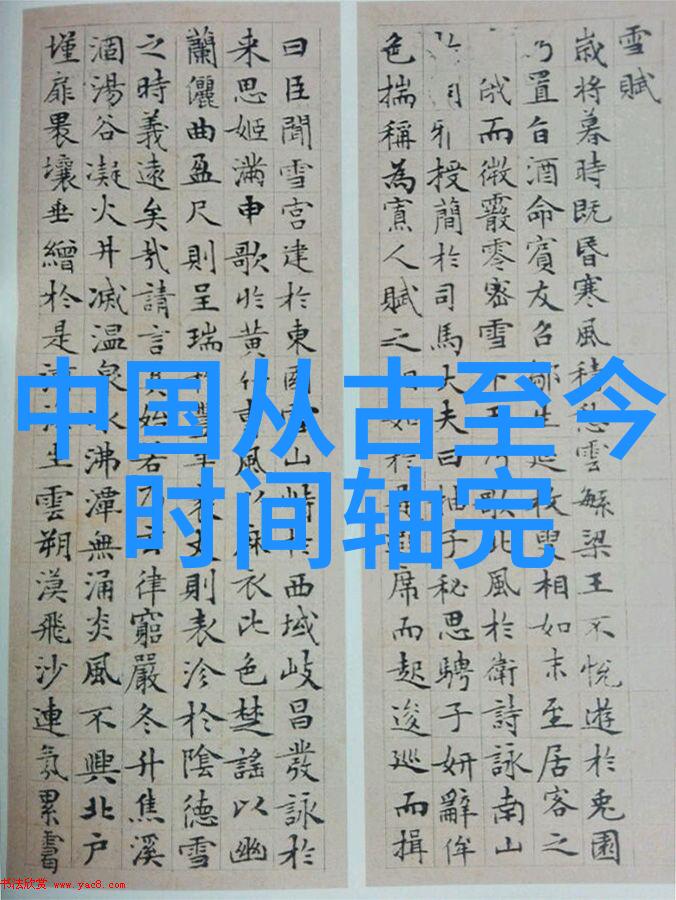 雪賦
歲將暮時既昏寒風積愁雲繁梁王不悅遊於兔園
乃置旨酒命賓友召鄒生延枚叟相如末至居客之
俄而微霰零密雪下王乃歌北風於衛詩詠南山
雅授簡於司馬大夫曰抽子秘思騁子妍辭侔
色揣稱為寡人賦之相如於是避席而起逡巡而揖
曰臣聞雪宮建於東國雪山峙於西域岐昌發詠於
来思姬滿申歌於黃竹曹風以麻衣比色楚謠以幽
蘭儷曲盈尺則呈瑞於豐年袤丈則表沴於陰德雪
之時義遠矣哉請言其始若乃玄律窮嚴冬升焦溪
涸湯谷凝火井滅温泉冰沸潭無涌炎風不興北户
墐扉裸壤垂繒於是河海生雲朔漠飛沙連氛累靄
中国从古至今
时间轴完
书法欣赏 www.yac8.com